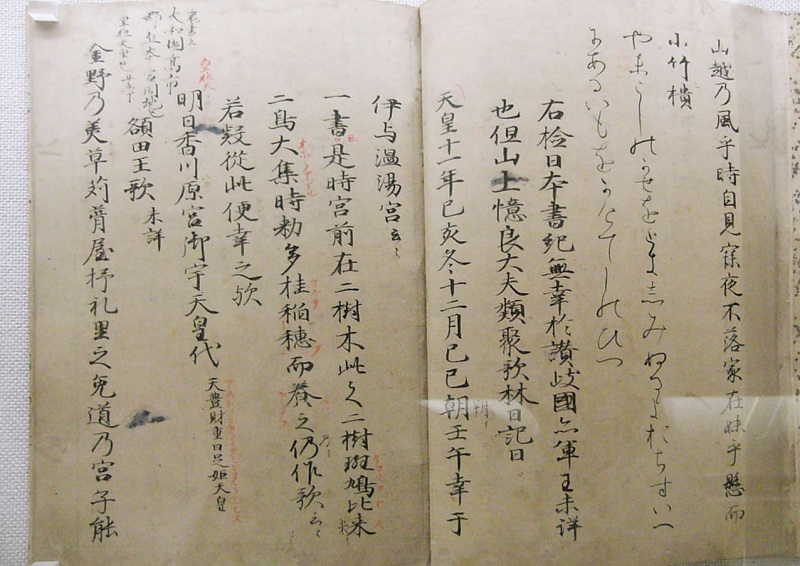 山越乃風乎時自見寐夜不落家在妹乎懸而
小竹樻
やまこしのかせをときしみぬるよおちすいへ
にあるいもをかけてしのひつ
右檢日本書紀無幸於讃岐國亦軍王未詳
也但山上憶良大夫類聚歌林曰記曰
天皇十一年己亥冬十二月己巳朔壬午幸于
伊与温湯宮云〻
一書是時宮前在二樹木此之二樹斑鳩比米
二鳥大集時勅多挂稲穂而養之仍作歌云〻
若疑從此便幸之歟
明日香川原宮御宇天皇代 天豊財重日足姫天皇
額田王歌 未詳
金野乃美草苅葺屋杼礼里之兔道乃宮子能